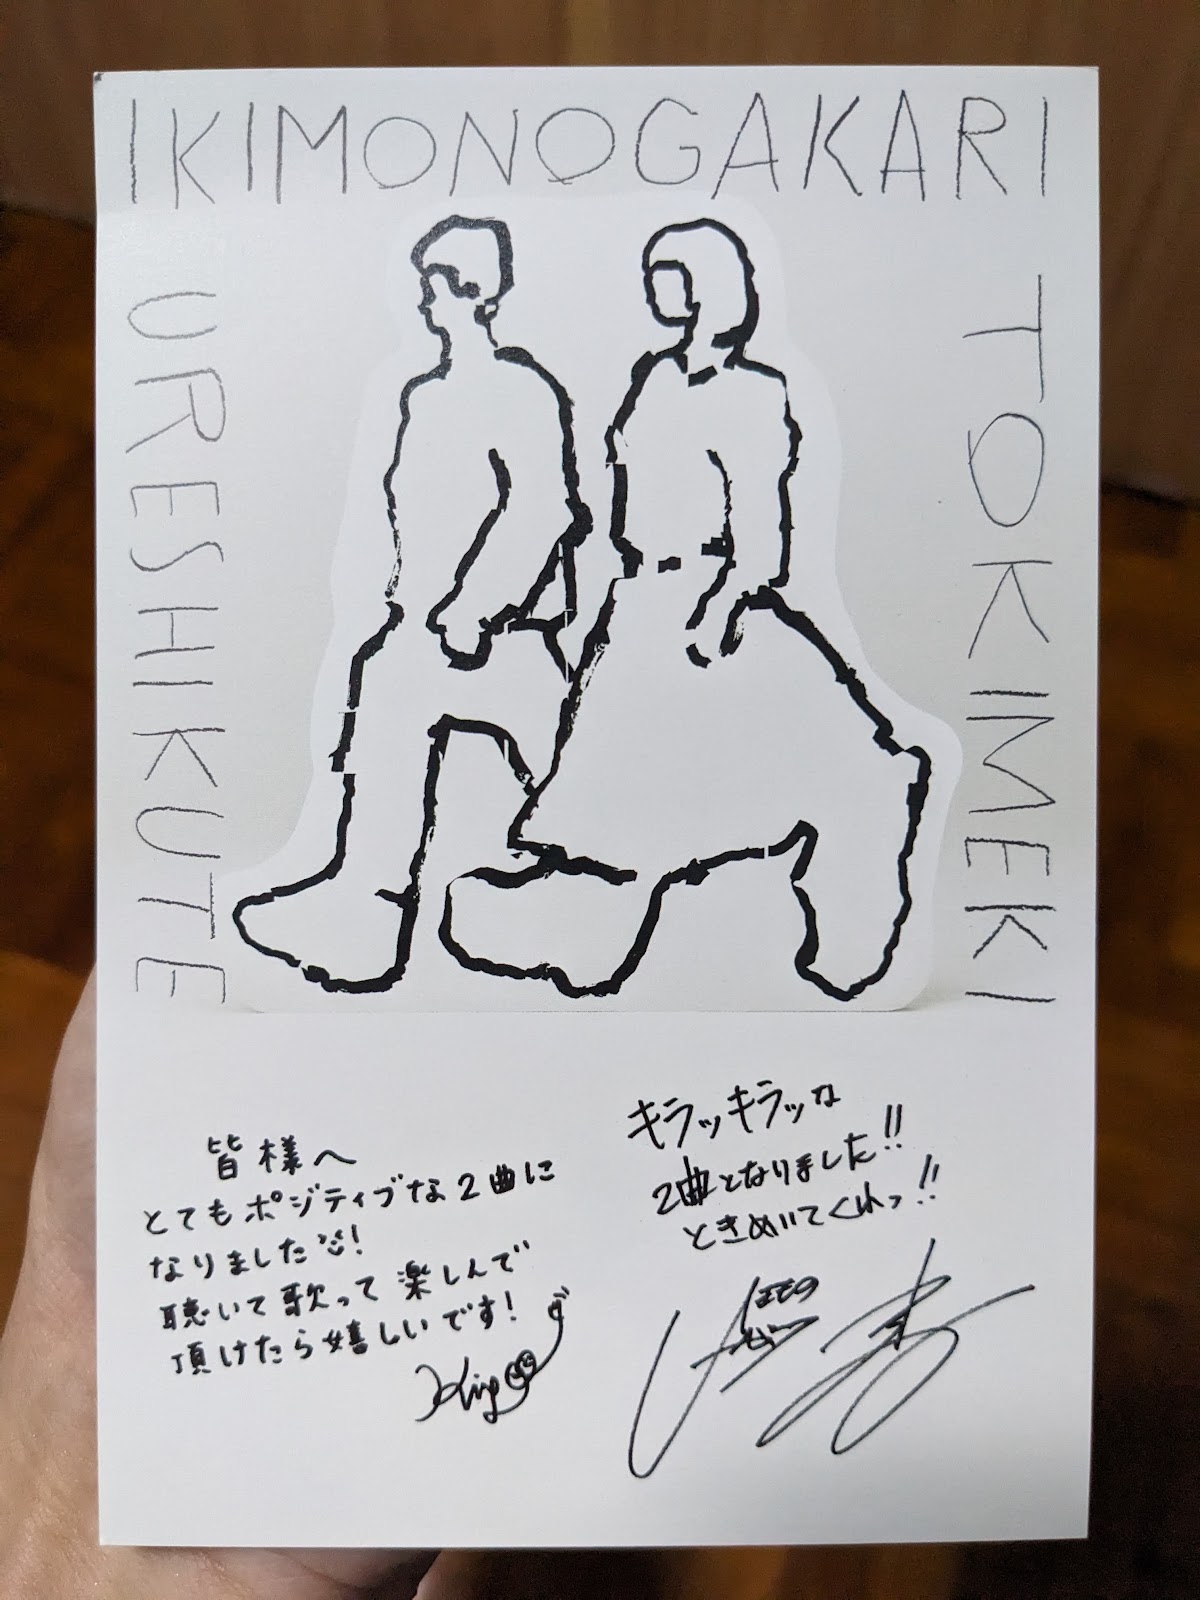 IKIMONOGAKARI
URESHIKUTE
TOKIMEKI
皆様へ
とてもポジティブな2曲に
なりました!
聴いて歌って楽しんで
頂けたら嬉しいです!
キラッキラッな
2曲となりました!!
ときめいてくれっ!!